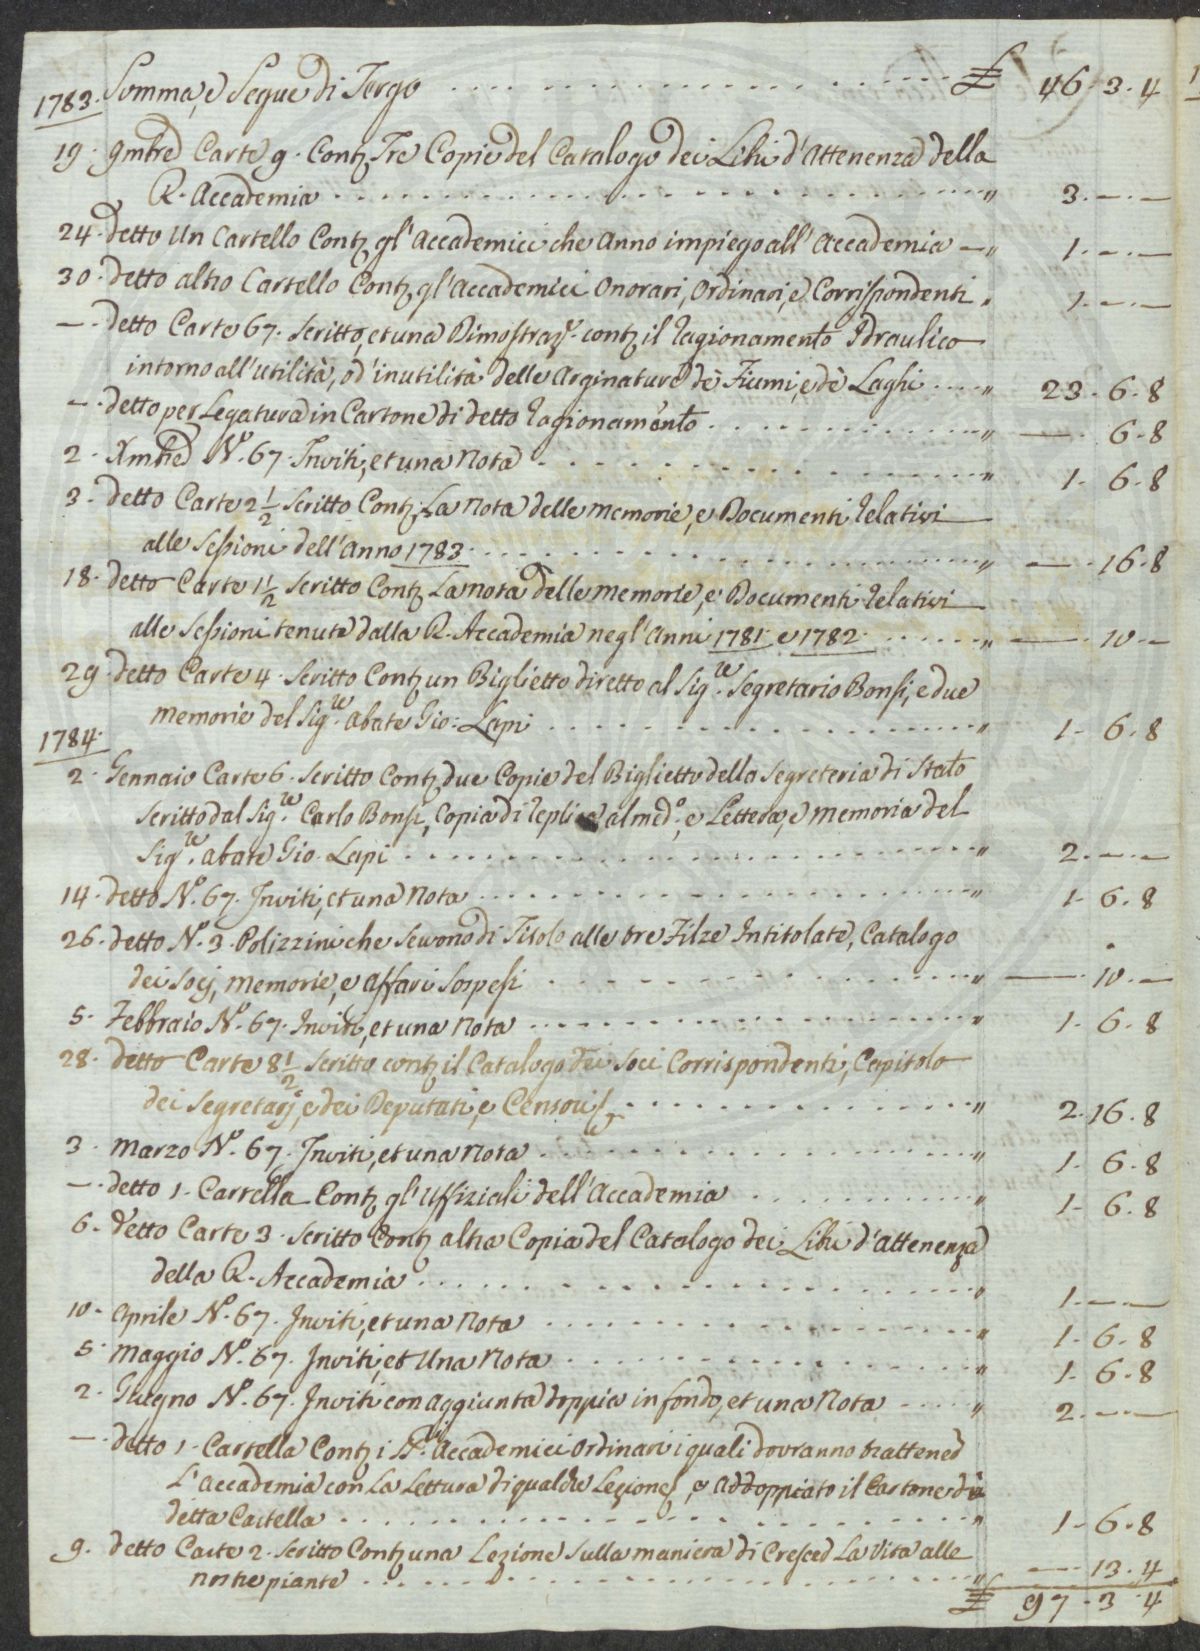 1783. Somma, e Segue di Tergo £ 46. 3. 4
19. 9mbre Carte 9. Contz. Tre Copie del Catalogo dei Libri d'Attenenza della
R. Accademia " 3. — . —
24. detto Un Cartello Contz. gl'Accademici che anno impiego all'Accademia — " 1. — . —
30. detto altro Cartello Contz. gl'Accademici Onorari, Ordinari, e Corrispondenti " 1. — . —
— . detto Carte 67. scritto, et una Dimostraze. contz. il ragionamento Idraulico
intorno all'utilità, o d'inutilità delle Arginature dè Fiumi, e dè Laghi " 23. 6. 8
— . detto per Legatura in Cartone di detto ragionamento " — 6. 8
2. Xmbre No. 67. Inviti, et una Nota " 1. 6. 8
3. detto Carte 2 1/2 scritto Contz. La Nota delle memorie, e Documenti relativi
alle Sessioni dell'Anno 1783. " — . 16. 8
18. detto Carte 1 1/2 scritto Contz. La nota delle memorie, e Documenti relativi
alle Sessioni tenute dalla R. Accademia negl'Anni 1781. e 1782. " — 10. —
29. detto Carte 4. scritto Contz. un Biglietto diretto al Sigre. Segretario Bonsi, e due
memorie del Sigre. abate Gio: Lapi " 1. 6. 8
1784.
2. Gennaio Carte 6. scritto Contz. due Copie del Biglietto della Segreteria di Stato
scritto dal Sigre. Carlo Bonsi, Copia di replica al medo., e Lettera, e memoria del
Sigre. abate Gio. Lapi " 2. — . —
14. detto No. 67. Inviti, et una Nota " 1. 6. 8
26. detto No. 3. Polizzini che Servono di Titolo alle tre Filze Intitolate, Catalogo
dei Socj, memorie, e affari Sospesi " — 10. —
5. Febbraio No. 67. Inviti, et una Nota " 1. 6. 8
28. detto Carte 8 1/2 scritto contz. il Catalogo dei Soci Corrispondenti, Capitolo
dei Segretarj, e dei Deputati, e Censori " 2. 16. 8
3. Marzo No. 67. Inviti, et una Nota " 1. 6. 8
— . detto 1. Cartella Contz. gl'Uffiziali dell'Accademia " 1. 6. 8
6. detto Carte 3. scritto Contz. altra Copia del Catalogo dei Libri d'attenenza
della R. Accademia " 1. — . —
10. Aprile No. 67. Inviti, et una Nota " 1. 6. 8
5. Maggio No. 67. Inviti, et Una Nota " 1. 6. 8
2. Giugno No. 67. Inviti con aggiunta doppia in fondo, et una Nota " 2. — . —
— . detto 1. Cartella Contz. i SSri. Accademici Ordinari i quali dovranno trattenere
L'Accademia con La Lettura di qualche Lezione, e addoppiato il Cartone di
detta Cartella " 1. 6. 8
9. detto Carte 2. scritto Contz. una Lezione sulla maniera di Crescer La Vita alle
nostre piante " — 13. 4
£ 97. 3. 4